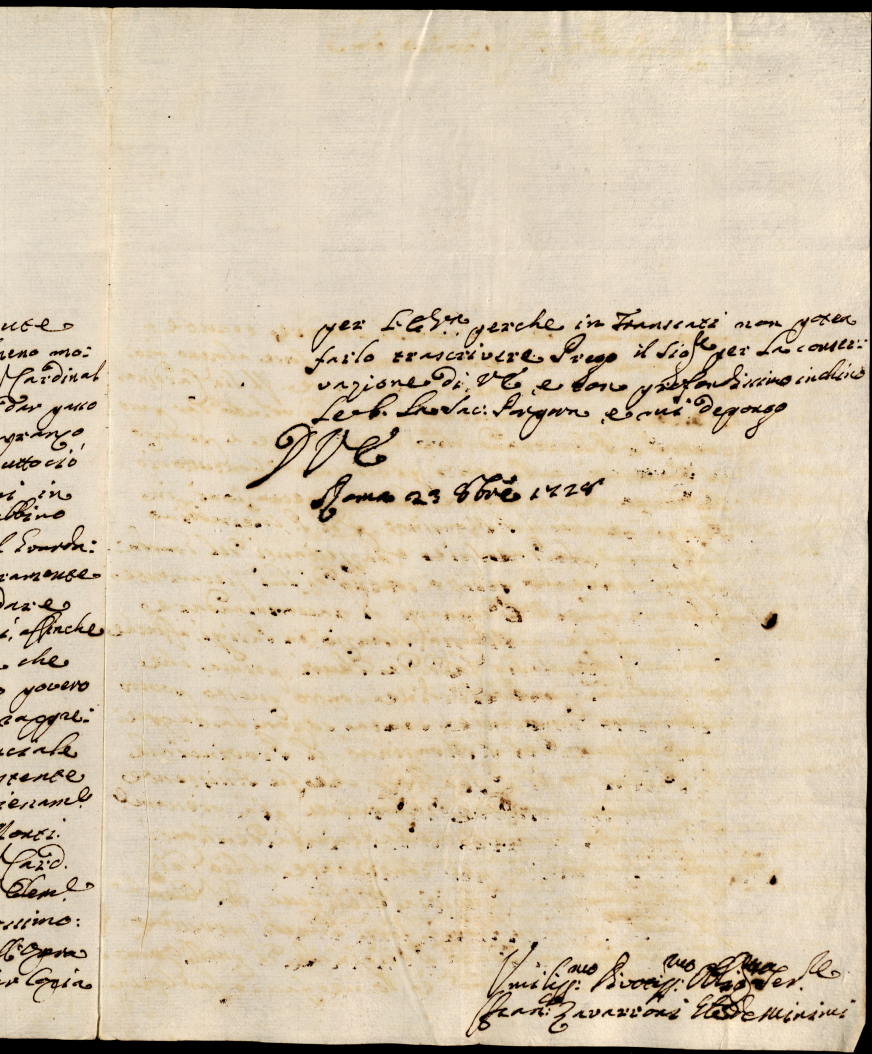 ute
meno mo:
Cardinal
dar passo
pranzo
uttociò
ni in
abbino
l Guarda:
ramente
dare
i, affinche
che
povero
rappre:
uciale
ntente
Monti.
Card.
Clem.
issimo:
Opra
Copia
per perche in Franscati non potea
farlo trascrivere Prego il Sigre per la conser:
vazione di VE e con profondissimo inchino
Le b. La Sac: Porpora e mi depongo
D VE
Roma 23 8bre 1728
Umiliss:mo Divotiss:mo Obligmo Ser.re
Fran: Zavarroni de Minimi